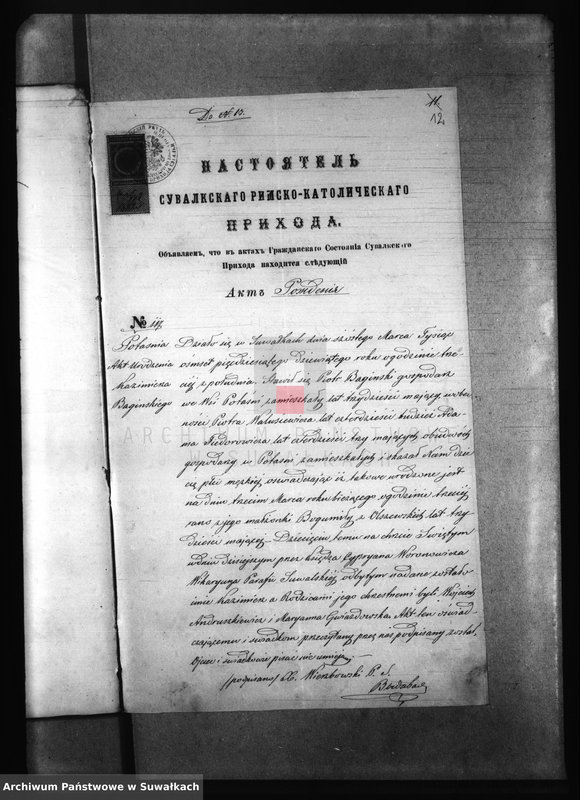 Do № 13.
11
12
НАСТОЯТЕЛЬ
СУВАЛКСКАГО РИМСКО-КАТОЛИЧЕСКАГО
ПРИХОДА.
Объявляемъ, что въ актахъ Гражданскаго Состоянія Сувалкскаго
Прихода находится слѣдующій
Актъ Рожденія
№
Potasnia
Akt Urodzenia
Kazimierza
Baginskiego
Działo się w Suwałkach dnia szóstego Marca Tysiąc
ośmset pięćdziesiątego dziewiątego roku o godzinie trze
ciej z południa. Stawił się Piotr Baginski gospodarz
we Wsi Potaśni zamieszkały lat trzydzieści mający w obec
ności Piotra Waluszewicza lat czterdzieści tudzież Ada
ma Fiedorowicza lat czterdzieści trzy mających obudwóch
gospodarzy w Potaśni zamieszkałych i okazał Nam dzie
cię płci męzkiej oświadczając iż takowe urodzone jest
na dniu trzecim Marca roku bieżącego o godzinie trzeciej
rano z jego małżonki Bogumiły z Olszewskich lat trzy
dzieści mającej. Dziecięciu temu na chrzcie Świętym
w dniu dzisiejszym przez Księdza Cypryana Woronowicza
Wikaryusza Parafii Suwalskiej odbytym nadane zostało
imie Kazimierz a Rodzicami jego chrzestnemi byli Wojciech
Andruszkiewicz i Maryanna Gwiazdowska. Akt ten oświad
czającemu i świadkom przeczytany przez nas podpisany został.
Ojciec i świadkowie pisać nie umieją.
(podpisano) X. Wierzbowski P. S.
ARCHIWUM PAŃSTWOWE
W SUWAŁKACH
Archiwum Państwowe w Suwałkach